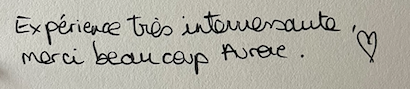 Expérience très interressante,
merci beaucoup Aurore.